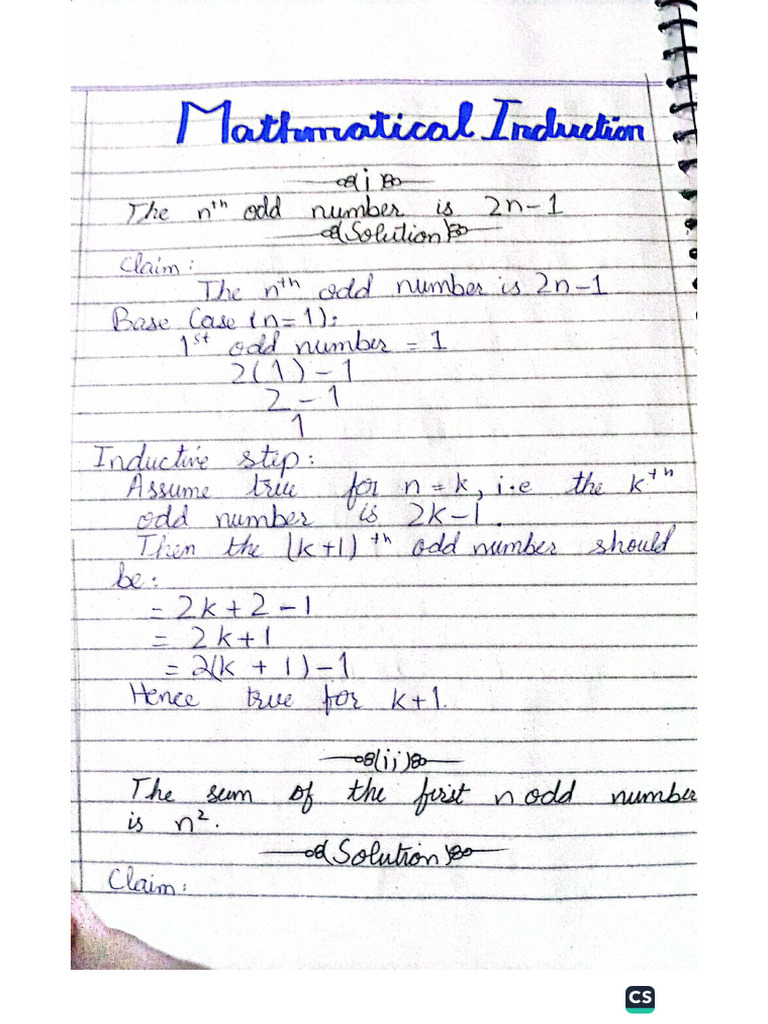 Mathmatical Induction
(i)
The nth odd number is 2n-1
(Solution)
Claim:
The nth odd number is 2n-1
Base Case (n=1):
1st odd number = 1
2(1) - 1
2 - 1
1
Inductive step:
Assume true for n=k, i.e the kth
odd number is 2k-1.
Then the (k+1)th odd number should
be:
= 2k+2-1
= 2k+1
= 2(k + 1)-1
Hence true for k+1.
(ii)
The sum of the first n odd number
is n².
(Solution)
Claim:
CS